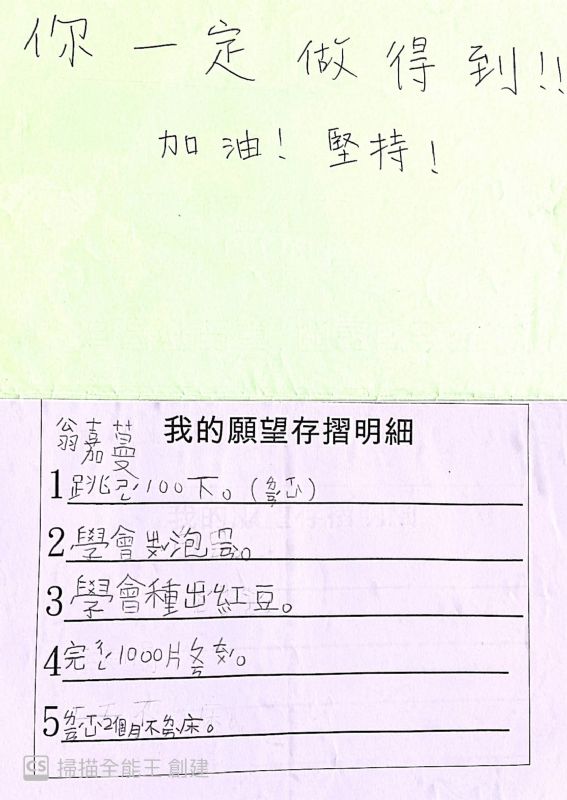 你一定做得到!!
加油！堅持！
我的願望存摺明細
翁嘉蔓
1 跳 100下。
2 學會 泡 。
3 學會種出紅豆。
4 完 1000片 。
5 2個月不 床。
CS 掃描全能王 創建